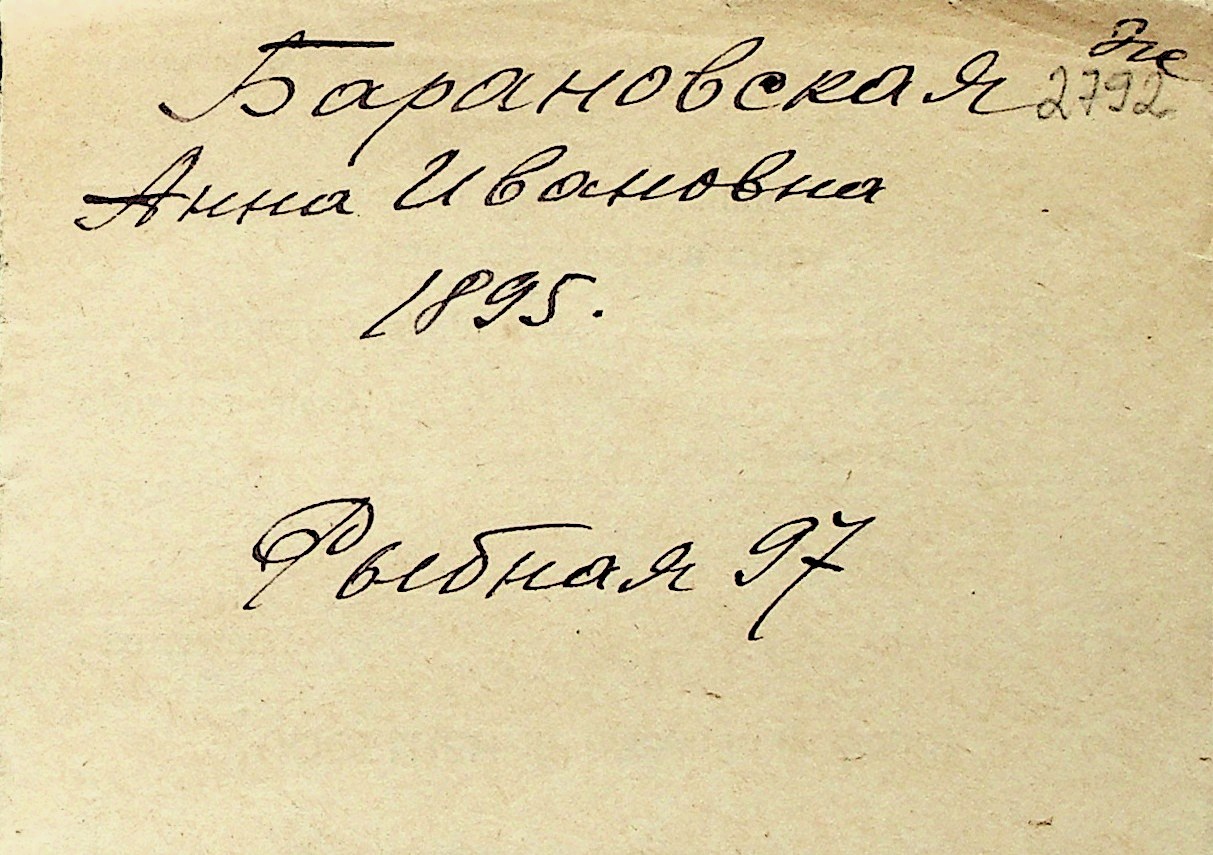 Барановская
2792
Анна Ивановна
1895.
Рыбная 97